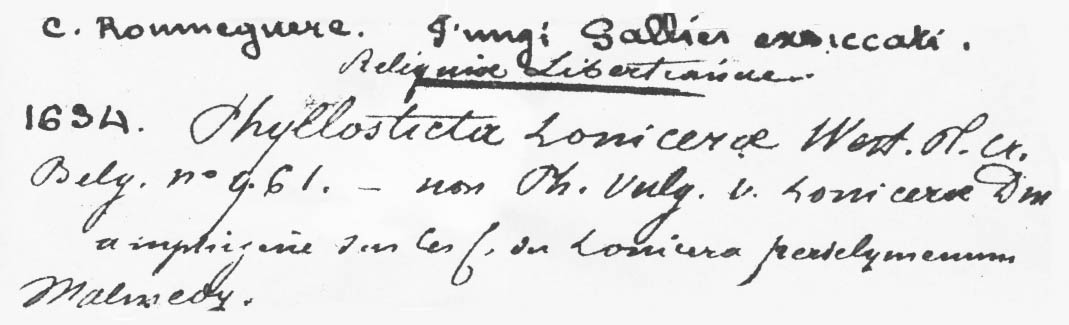 C. Roumeguere. Fungi Gallici exsiccati.
Reliquiae Libertianae.
1634. Phyllosticta Lonicerae West. H. cr.
Belg. no 961. – non Ph. Vulg. v. Lonicerae Dm
amphigene sur les f. du Lonicera periclymenum
Malmedy.